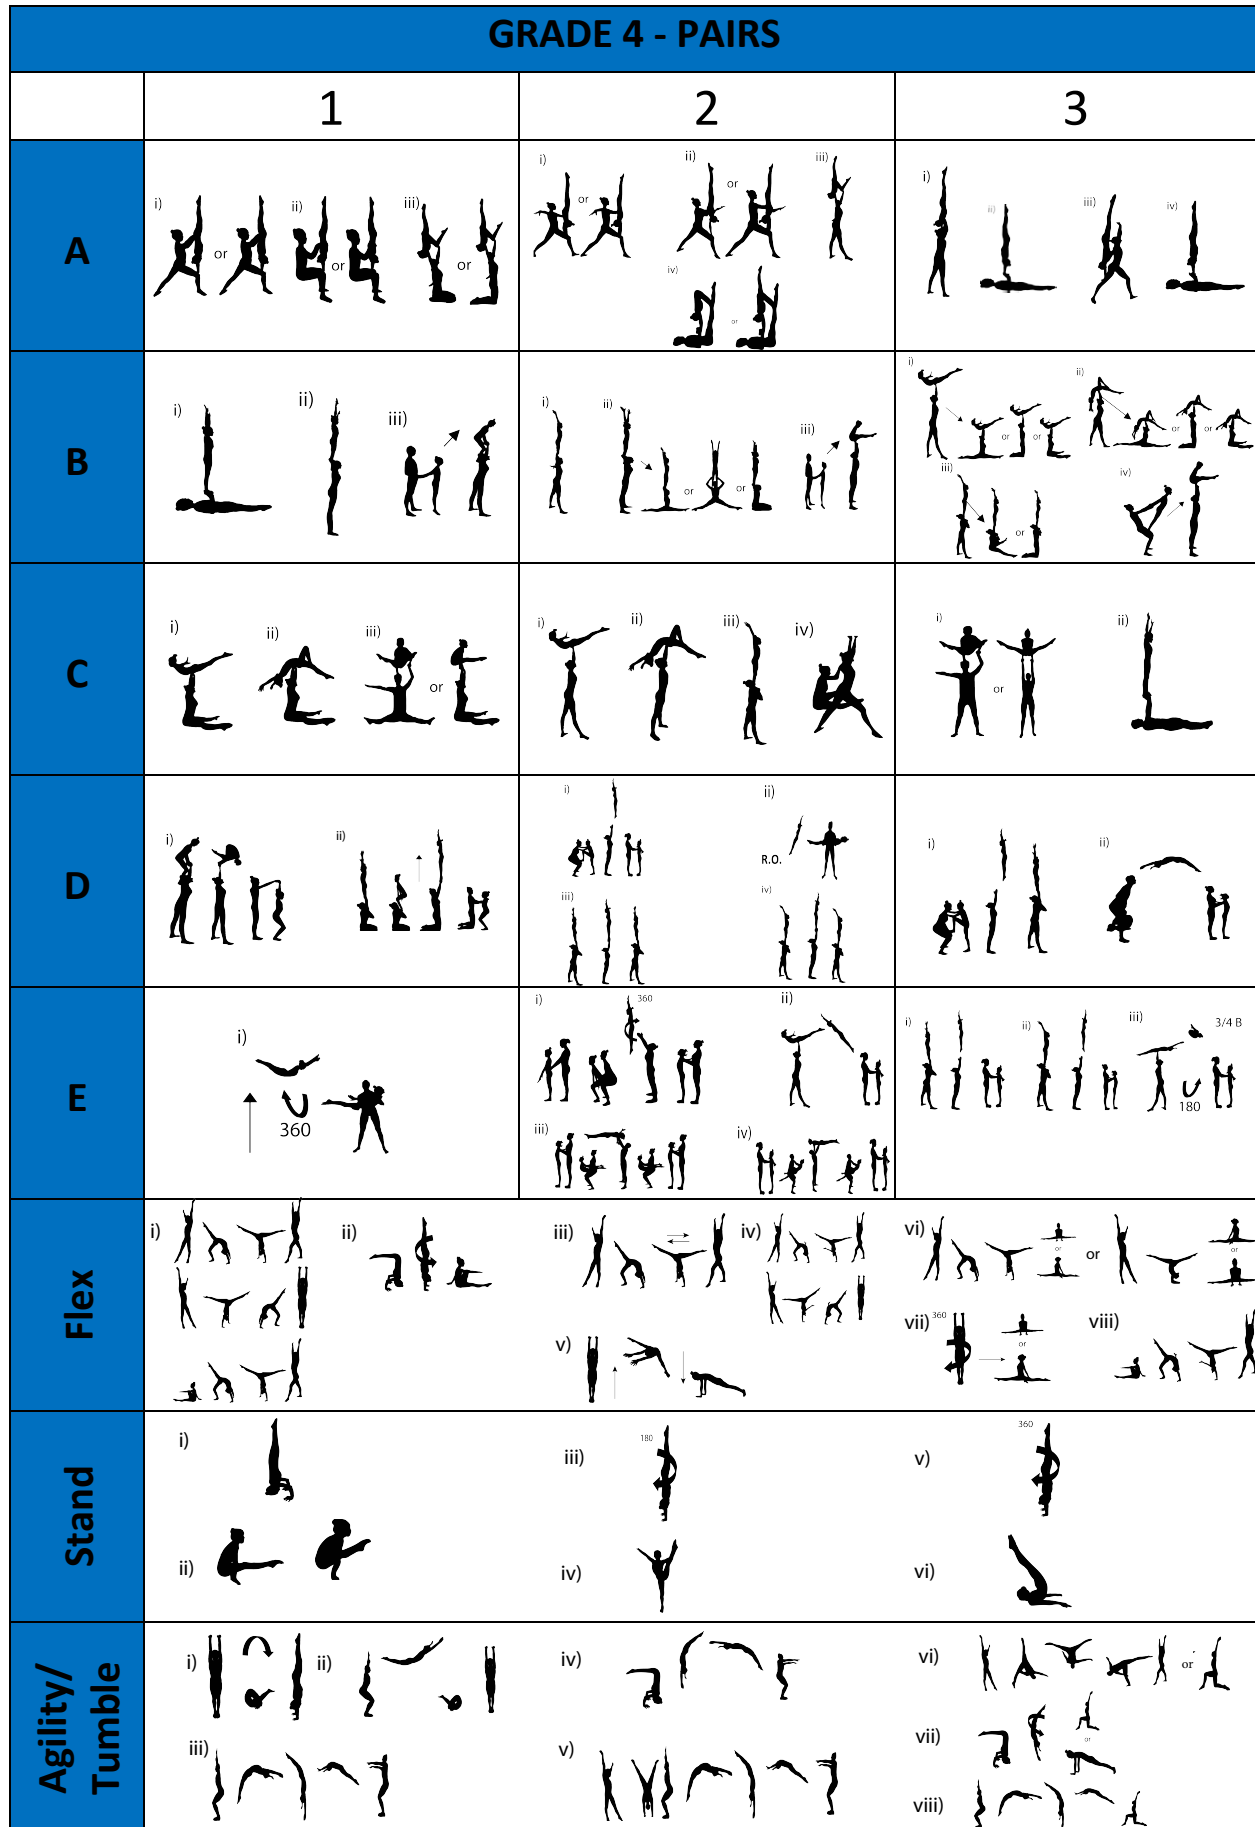 GRADE 4 - PAIRS
1 2 3
A
i) or ii) or iii) or
i) or ii) or iii)
iv) or
i) ii) iii) iv)
B
i) ii) iii)
i) ii) or or iii)
i) or or ii) or or
iii) or iv)
C
i) ii) iii) or
i) ii) iii) iv)
i) or ii)
D
i) ii)
i) ii) R.O.
iii) iv)
i) ii)
E
i) 360
i) 360 ii)
iii) iv)
i) ii) iii) 3/4 B 180
Flex
i) ii) iii) iv) vi) or or or
v) vii) 360 or viii)
Stand
i) iii) 180 v) 360
ii) iv) vi)
Agility/
Tumble
i) ii) iv) vi) or
vii) or
iii) v) viii)